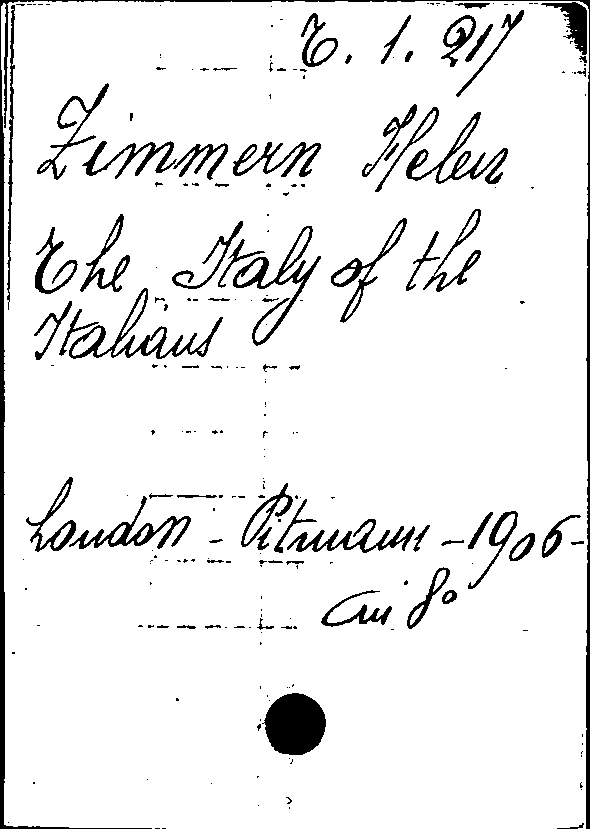 T. 1. 217
Zimmern Helen
The Italy of the
Italians
London - Pitmann - 1906 -
in 8°